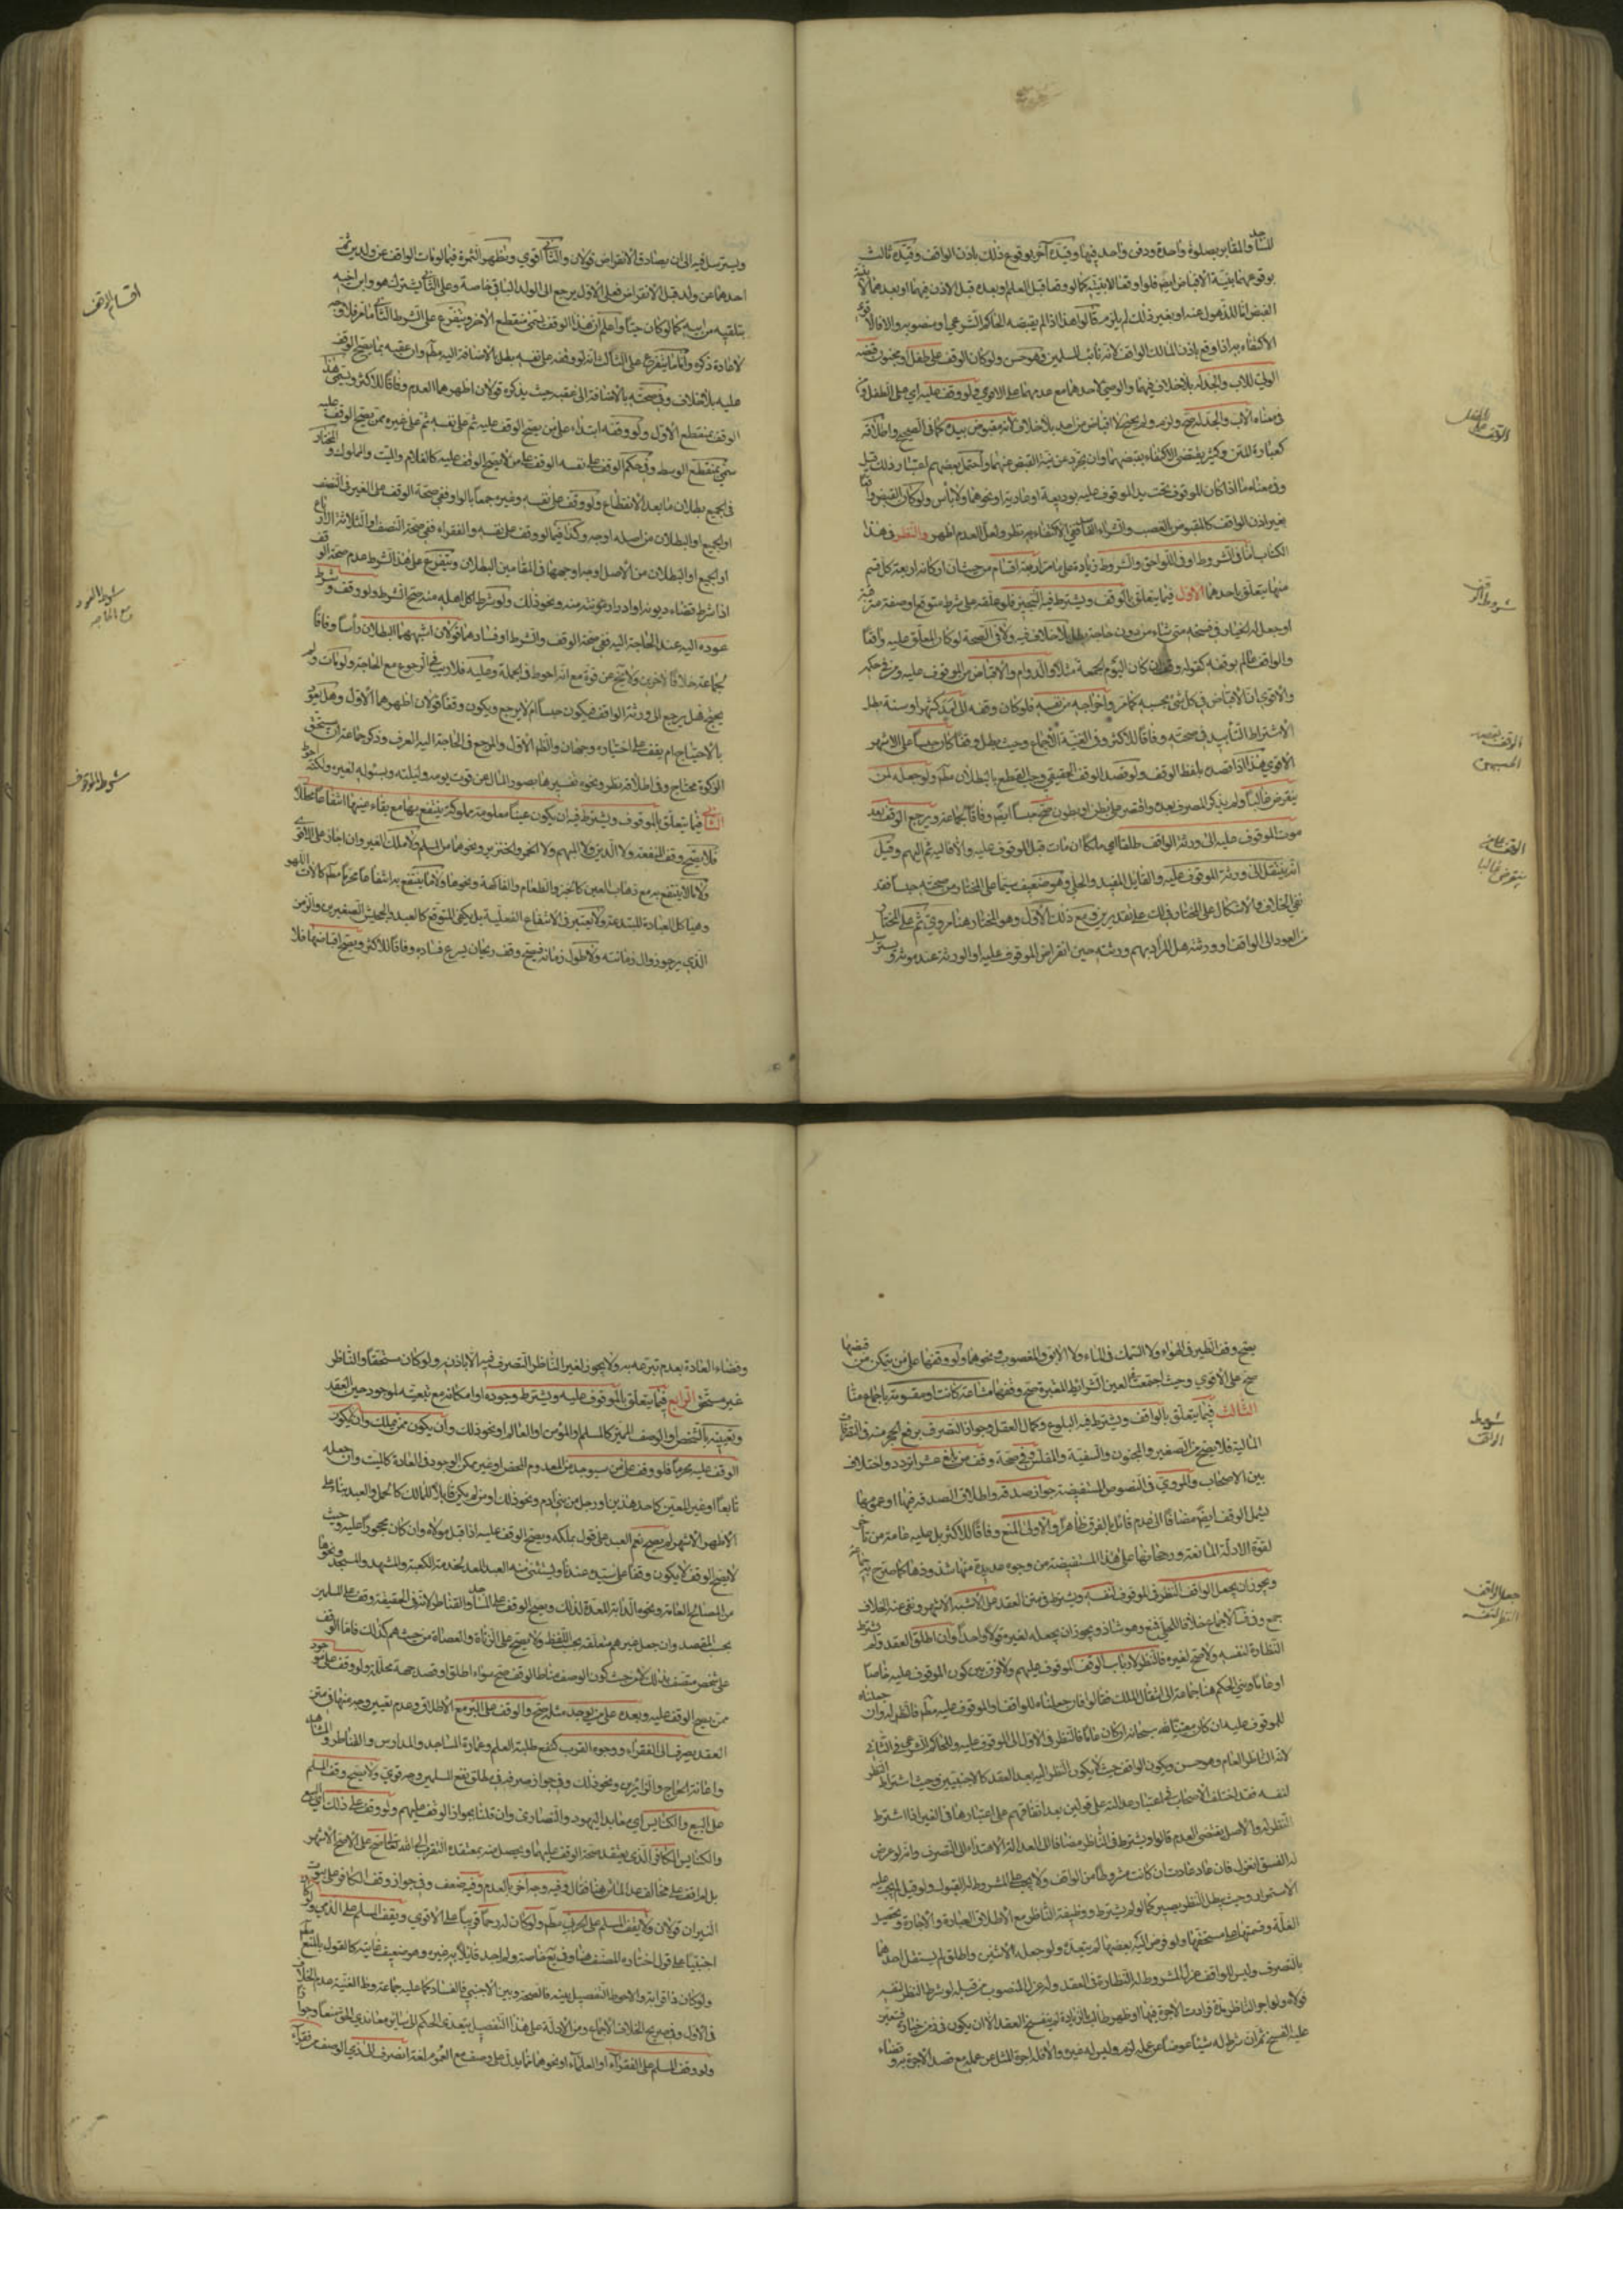 للمساجد والمقابر بصلوة واحدة ودفن واحد فيها وقيده آخر بوقوع ذلك باذن الواقف وقيده ثالث
بوقوعهما بنية الاقباض ايضا فلو اوقعا لا بنيته كما لو وقعا قبل العلم وبعده قبل الاذن فيهما او بعدهما لا بنية
القبض اما للذهول عنه او بغير ذلك لم يلزم قالوا هذا اذا لم يقبضه الحاكم الشرعي او منصوبه والا فالاقوى
الاكتفاء به اذا وقع باذن المالك الواقف لانه نائب المسلمين فهو حسن ولو كان الوقف على طفل او مجنون قبضه
الولي كالاب والجد له بلا خلاف فيهما والوصي لاحدهما مع عدمهما على الاقوى ولو وقف عليه اي على الطفل و
في معناه الاب والجد له صح ولزم ولم يحتج الى اقباض من احد بلا خلاف لانه مقبوض بيده كما في الصحيح واطلاقه
كعبارة المتن وكثير يقتضي الاكتفاء بقبضهما وان تجرد عن نية القبض عنهما واحتمل بعضهم اعتبار ذلك قيل
وفي معناه ما اذا كان الموقوف تحت يد الموقوف عليه بوديعة او عارية او نحوهما ولا باس ولو كان القبض واقعا
بغير اذن الواقف كالمقبوض بالغصب والشراء الفاسد ففي الاكتفاء به نظر ولعل العدم اظهر والنظر في هذا
الكتاب اما في الشروط او في اللواحق والشروط زيادة على ما مر اربعة اقسام من حيث ان اركانه اربعة كل قسم
منها يتعلق باحدها الاول فيما يتعلق بالوقف ويشترط فيه التنجيز فلو علقه على شرط متوقع او صفة مترقبة
او جعل له الخيار في فسخه متى شاء من دون حاجة بطل بلا خلاف فيه ولا في الصحة لو كان المعلق عليه واقعا
والواقف عالم بوقوعه كقوله وقفت ان كان اليوم الجمعة مثلا والدوام والاقباض من الموقوف عليه ومن في حكمه
والاقوى ان الاقباض في كل شئ بحسبه كما مر واخراجه من نفسه فلو كان وقفه الى امد كشهر او سنة بطل
لاشتراط التابيد في صحته وفاقا للاكثر وفي الغنية الاجماع وحيث بطل وقفا كان حبسا على الاشهر
الاقوى هذا اذا قصده بلفظ الوقف ولو قصد الوقف الحقيقي وجب القطع بالبطلان مطلقا ولو جعله لمن
ينقرض غالبا ولم يذكر المصرف بعده واقتصر على بطن او بطون صح حبسا ايضا وفاقا لجماعة ويرجع الوقف بعد
موت الموقوف عليه الى ورثة الواقف طلقا اي ملكا ان مات قبل الموقوف عليه والا فاليه ثم اليهم وقيل
انه ينتقل الى ورثة الموقوف عليه والقائل المفيد والحلي وهو ضعيف سيما على المختار من صحته حبسا فقد
نفي الخلاف والاشكال على المختار في المسالك على تقديره وفي مع ذلك الاول وهو المختار هنا مروي ثم على المختار
من العود الى الواقف او ورثته هل المراد بهم ورثته حين انقراض الموقوف عليه او الورثة عند موته و يسترسل
الوقف على الطفل
شروط الوقف
الوقف بقصد الحبس
الوقف على من ينقرض غالبا
ويسترسل فيه الى ان يصادف الانقراض قولان والثاني اقوى وتظهر الثمرة فيما لو مات الواقف عن ولدين ثم
احدهما عن ولد قبل الانقراض فعلى الاول يرجع الى الولد الباقي خاصة وعلى الثاني يشترك هو وابن اخيه
بتلقيه من ابيه كما لو كان حيا واعلم ان هذا الوقف يسمى منقطع الاخر ويتفرع على الشرط الثاني ما مر فلا وجه
لاعادة ذكره واما ما يتفرع على الثالث انه لو وقفه على نفسه بطل بالاضافة اليه مطلقا وان عقبه بما يصح الوقف
عليه بلا خلاف وفي صحته بالاضافة الى عقبه حيث يذكره قولان اظهرهما العدم وفاقا للاكثر ويسمى هذا
الوقف بمنقطع الاول ولو وقفه ابتداء على من يصح الوقف عليه ثم على نفسه ثم على غيره ممن يصح الوقف عليه
سمي بمنقطع الوسط وفي حكم الوقف على نفسه الوقف على من لا يصح الوقف عليه كالغلام والميت والمملوك و المختار
في الجميع بطلان ما بعد الانقطاع ولو وقف على نفسه وغيره جمعا بالواو ففي صحة الوقف على الغير في النصف
او الجميع او البطلان من اصله اوجه وكذا فيما لو وقف على نفسه والفقراء ففي صحة النصف او الثلاثة الارباع
او الجميع او البطلان من الاصل اوجه اوجهها في المقامين البطلان ويتفرع على هذا الشرط عدم صحة الوقف
اذا شرط قضاء ديونه او ادرار مؤنته منه ونحو ذلك ولو شرط اكل اهله منه صح الشرط ولو وقف وشرط
عوده اليه عند الحاجة اليه ففي صحة الوقف والشرط او فسادهما قولان اشبههما البطلان راسا وفاقا
لجماعة خلافا لاخرين ولا يخ عن قوة مع انه احوط في الجملة وعليه فلا ريب في الرجوع مع الحاجة ولو مات ولم
يحتج فهل يرجع الى ورثة الواقف فيكون حبسا ام لا يرجع ويكون وقفا قولان اظهرهما الاول وهل يعود
بالاحتياج ام يقف على اختياره وجهان والظاهر الاول والمرجع في الحاجة اليه العرف وذكر جماعة ان يستحق
الزكوة لاحتياج وفي اطلاقه نظر ونحوه تفسيرها بقصور المال عن قوت يومه وليلته وبسئواله لغيره ولكنه احوط
الثاني فيما يتعلق بالموقوف ويشترط فيه ان يكون عينا معلومة مملوكة ينتفع بها مع بقاء عينها انتفاعا محللا
فلا يصح وقف المنفعة ولا الدين ولا المبهم ولا الخمر والخنزير ونحوهما من المسلم ولا ملك الغير وان اجاز على الاقوى
ولا ما لا ينتفع به مع ذهاب العين كالخبز والطعام والفاكهة ونحوها ولا ما ينتفع به انتفاعا محرما مطلقا كآلات اللهو
وهياكل العبادة المبتدعة ولا يعتبر في الانتفاع الفعلية بل يكفي المتوقع كالعبد والجحش الصغيرين والزمن
الذي يرجو زوال زمانته ولا طول زمانه فيصح وقف ريحان يسرع فساده وفاقا للاكثر ويصح اقباضها فلا
اقسام الوقف
شرط العود مع الحاجة
شروط الموقوف
يصح وقف الطير في الهواء ولا السمك في الماء ولا الابق والمغصوب ونحوها ولو وقفها على من يتمكن من قبضها
صح على الاقوى وحيث اجتمعت العين الشرائط المعتبرة صح وقفها مشاعة كانت او مقسومة باجماع منا
الثالث فيما يتعلق بالواقف ويشترط فيه البلوغ وكمال العقل وجواز التصرف برفع الحجر عنه في التصرفات
المالية فلا يصح من الصغير والمجنون والسفيه والمفلس وفي صحة وقف من بلغ عشرا تردد واختلاف
بين الاصحاب والمروي في النصوص المستفيضة جواز صدقته واطلاق الصدقة فيها او عمومها
يشمل الوقف ايضا مضافا الى عدم قائل بالفرق ظاهرا والاولى المنع وفاقا للاكثر بل عليه عامة من تاخر
لقوة الادلة المانعة ورجحانها على هذه المستفيضة من وجوه عديدة منها شذوذها كما صرح به جماعة
ويجوز ان يجعل الواقف النظر في الموقوف لنفسه ويشترط في متن العقد على الاشبه الاشهر ونفى عنه الخلاف
جمع وفي الاجماع خلافا للحلي فمنع وهو شاذ ويجوز ان يجعله لغيره قولا واحدا وان اطلق العقد ولم يشترط
النظارة لنفسه ولا لغيره فالنظر لارباب الوقف الموقوف عليهم ولا فرق بين كون الموقوف عليه خاصا
او عاما وبني الحكم هنا جماعة الى انتقال الملك فقالوا فان جعلناه للواقف او للموقوف عليه مطلقا فالنظر له وان جعلناه
للموقوف عليه ان كان معينا لله سبحانه ان كان عاما فالنظر في الاول الى الموقوف عليه والحاكم الشرعي في الثاني
لانه الناظر العام وهو حسن ويكون الواقف حيث لا يكون النظر اليه بعد العقد كالاجنبي وحيث اشترط النظر
لنفسه فقد اختلف الاصحاب في اعتبار عدالته على قولين بعد اتفاقهم على اعتبارها في الغير اذا اشترط
النظر له والاصل يقتضي العدم قالوا ويشترط في الناظر مضافا الى العدالة الاهتداء الى التصرف وانه لو عرض
له الفسق انعزل فان عاد عادت ان كانت مشروطا من الواقف ولا يجب على المشروط له القبول ولو قبل لم يجب عليه
الاستمرار وحيث يبطل النظر يصير كما لو لم يشترط ووظيفة الناظر مع الاطلاق العمارة والاجارة وتحصيل
الغلة وقسمتها على مستحقها ولو فوض اليه بعضها لم يتعده ولو جعله لاثنين واطلق لم يستقل احدهما
بالتصرف وليس للواقف عزل المشروط له النظارة في العقد وله عزل المنصوب من قبله لو شرط النظر لنفسه
فولاه ولو آجر الناظر مدة فزادت الاجرة فيها او ظهر طالب بالزيادة لم ينفسخ العقد الا ان يكون في زمن خياره فيتعين
عليه الفسخ ثم ان شرط له شيئا عوضا عن عمله لزم وليس له غيره والا فله اجرة المثل عن عمله مع قصد الاجرة به و قضاء
شروط الواقف
جعل الواقف النظر لنفسه
وقضاء العادة بعدم تبرعه به ولا يجوز لغير الناظر التصرف فيه الا باذنه ولو كان مستحقا والناظر
غير مستحق الرابع فيما يتعلق بالموقوف عليه ويشترط وجوده او امكانه مع تبعيته لموجود حين العقد
وتعيينه بالشخص او الوصف المميز كالمسلم او المؤمن او العالم او نحو ذلك وان يكون ممن يملك وان لا يكون
الوقف عليه محرما فلو وقف على من سيوجد من المعدوم المحض او غير ممكن الوجود في العادة كالميت وان جعله
تابعا او غير المعين كاحد هذين او رجل من بني آدم ونحو ذلك او من لم يكن قابلا للمالك كالحمل والعبد بناء على
الاظهر الاشهر لم يصح نعم العبد على قول بملكه ويصح الوقف عليه اذا قبل مولاه وان كان محجورا عليه وحيث
لا يصح الوقف لا يكون وقفا على سيده عندنا ويستثنى منه العبد المعد لخدمة الكعبة والمشهد والمسجد ونحوها
من المصالح العامة ونحوه الدابة المعدة لذلك ويصح الوقف على المساجد والقناطر لانه في الحقيقة وقف على المسلمين
بحسب المقصد وان جعل غيرهم متعلقه بحسب اللفظ ولا يصح على الزناة والعصاة من حيث هم كذلك فاما الوقف
على شخص متصف بذلك لا من حيث كون الوصف مناطا لوقف صح سواء اطلق او قصد جهة محللة ولو وقف على موجود
ممن يصح الوقف عليه وبعده على من يوجد مثله صح والوقف على البر مع الاطلاق وعدم تعيين وجه منها في متن
العقد يصرف الى الفقراء ووجوه القرب كنفع طلبة العلم وعمارة المساجد والمدارس والقناطر والمشاهد
واعانة الحاج والزائرين ونحو ذلك وفي جواز صرفه في مطلق نفع المسلمين وجه قوي ولا يصح وقف المسلم
على البيع والكنايس اي معابد اليهود والنصارى وان قلنا بجواز الوقف عليهم ولو وقف على ذلك اي البيع
والكنايس الكافر الذي يعتقد صحة الوقف عليهما ويحصل منه بمعتقده التقرب الى الله تعالى صح على الاصح الاشهر
بل لم اقف على مخالف عدا الماتن هنا فقال وفيه وجه آخر بالعدم وفيه ضعف وفي جواز وقف الكافر على بيوت
النيران قولان ولا يقف المسلم على الحربي مطلقا ولو كان له رحما قريبا على الاقوى ويقف المسلم على الذمي ولو كان
اجنبيا على قول اختاره المصنف هنا وفي يع خاصة ولم اجد قائلا به غيره وهو ضعيف غايته كالقول بالمنع مطلقا
ولو كان ذا قرابة والاحوط التفصيل بينه فالصحة وبين الاجنبي فالفساد كما عليه جماعة وظاهر الغنية عدم الخلاف
في الاول وفي صريح الخلاف الاجماع ومن الادلة على هذا التفصيل يتعدى الحكم الى سائر معاندي الحق
ولو وقف المسلم على الفقراء او العلماء او نحوهما مما يدل على وصف مع العموم لغة انصرف الى ذي الوصف من فقراء